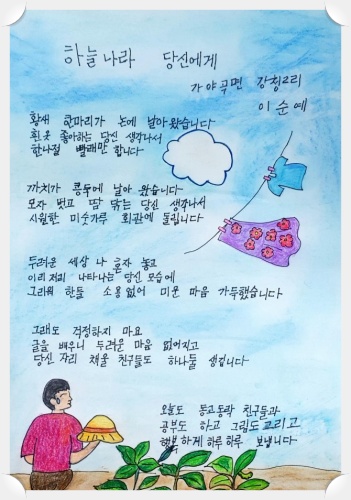 하늘 나라 당신에게
가야곡면 강청2리
이순예
황새 한마리가 논에 날아왔습니다
흰옷 좋아하는 당신 생각나서
한나절 빨래만 합니다
까치가 콩두에 날아 왔습니다
모자 벗고 땀 닦는 당신 생각나서
시원한 미숫가루 회관에 돌립니다
두려운 세상 나 혼자 놓고
이리저리 나타나는 당신 모습에
그리워 한들 소용없어 미운 마음 가득했습니다
그래도 걱정하지 마요
글을 배우니 두려운 마음 없어지고
당신 자리 채울 친구들도 하나둘 생깁니다
오늘도 동고동락 친구들과
공부도 하고 그림도 그리고
행복하게 하루하루 보냅니다